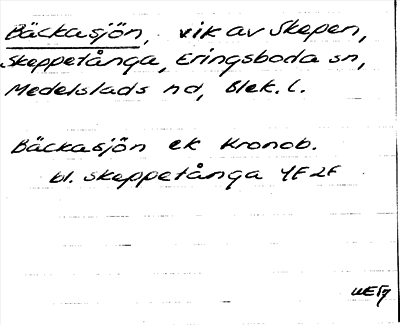 Bäckasjön, vik av Skepen,
Skeppetånga, Eringsboda sn,
Medelstads hd, Blek. l.
Bäckasjön ek Kronob.
bl. Skeppetånga 4F2F